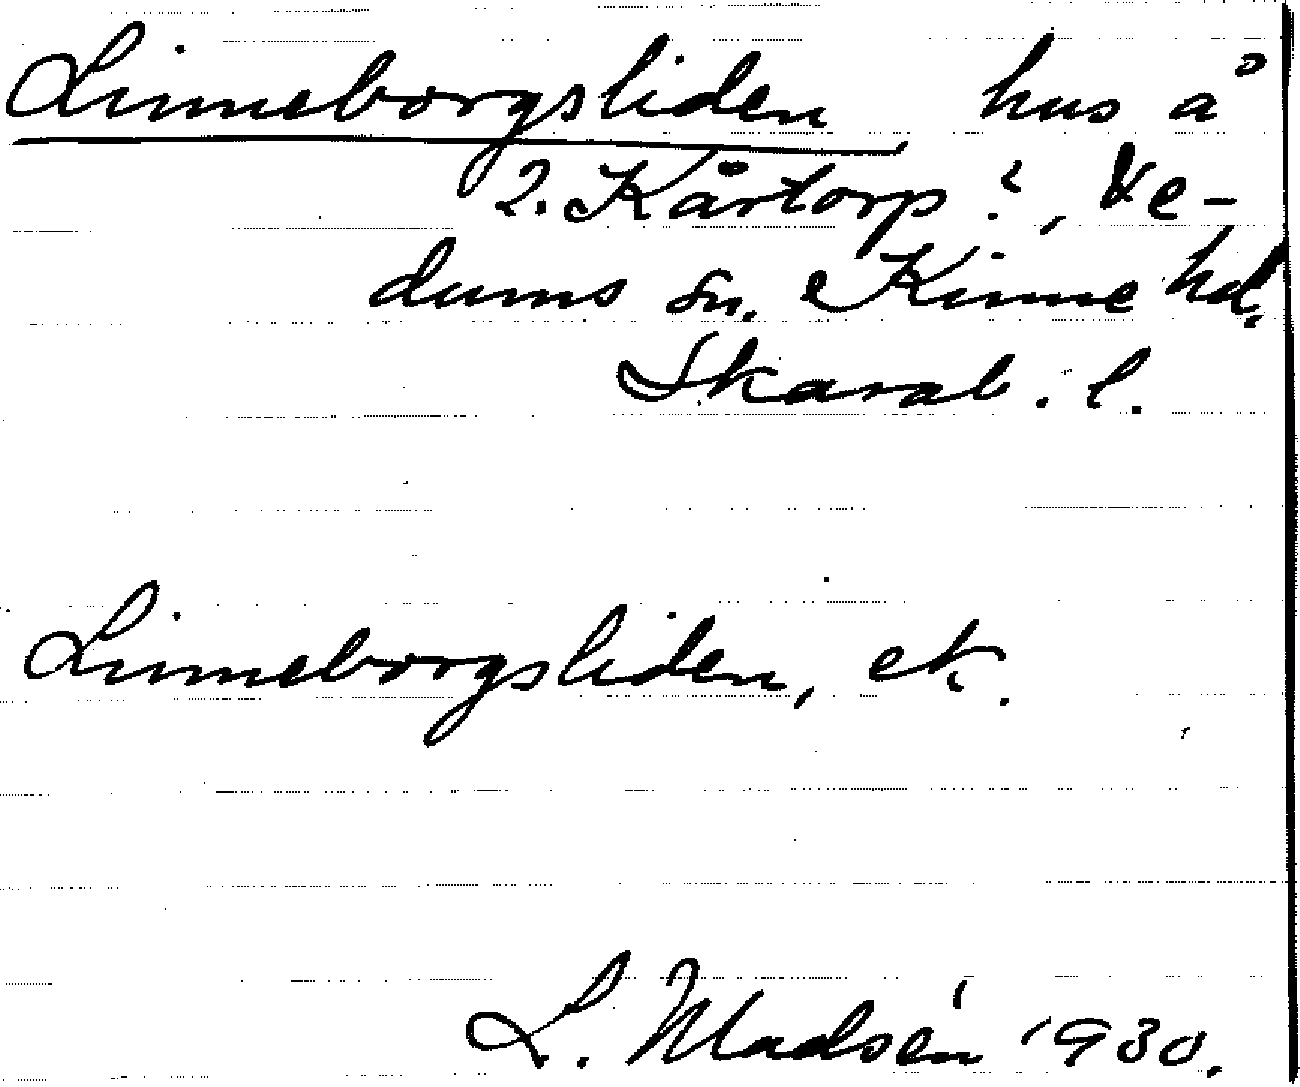 Linneborgsliden hus å
2. Kårtorp?, Ve-
dums sn. Kinne hd.
Skarab. l.
Linneborgsliden, ek.
L. Madsén 1930.